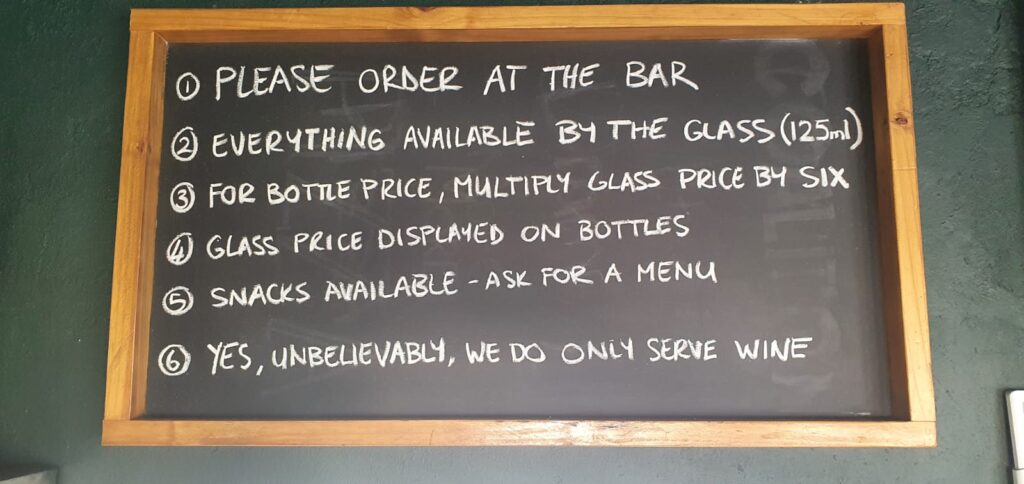 ① PLEASE ORDER AT THE BAR
② EVERYTHING AVAILABLE BY THE GLASS (125ml)
③ FOR BOTTLE PRICE, MULTIPLY GLASS PRICE BY SIX
④ GLASS PRICE DISPLAYED ON BOTTLES
⑤ SNACKS AVAILABLE - ASK FOR A MENU
⑥ YES, UNBELIEVABLY, WE DO ONLY SERVE WINE